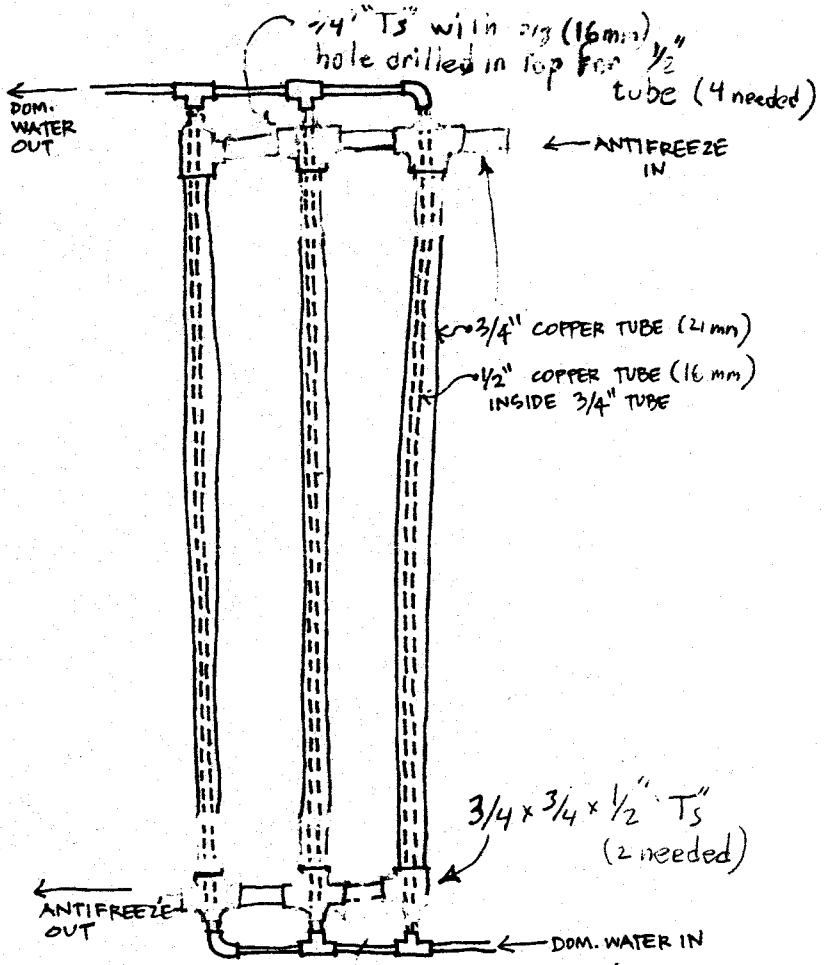 "Ts" with (16mm)
hole drilled in Top for 1/2"
tube (4 needed)
DOM.
WATER
OUT
ANTIFREEZE
IN
3/4" COPPER TUBE (21mm)
1/2" COPPER TUBE (16 mm)
INSIDE 3/4" TUBE
3/4 x 3/4 x 1/2" Ts"
(2 needed)
ANTIFREEZE
OUT
DOM. WATER IN